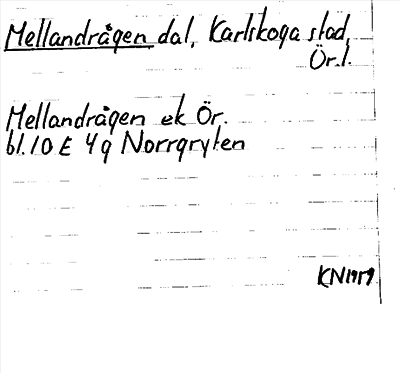 Mellandrågen dal, Karlskoga stad,
Ör.l.
Mellandrågen ek Ör.
bl.10 E 4g Norrgryten